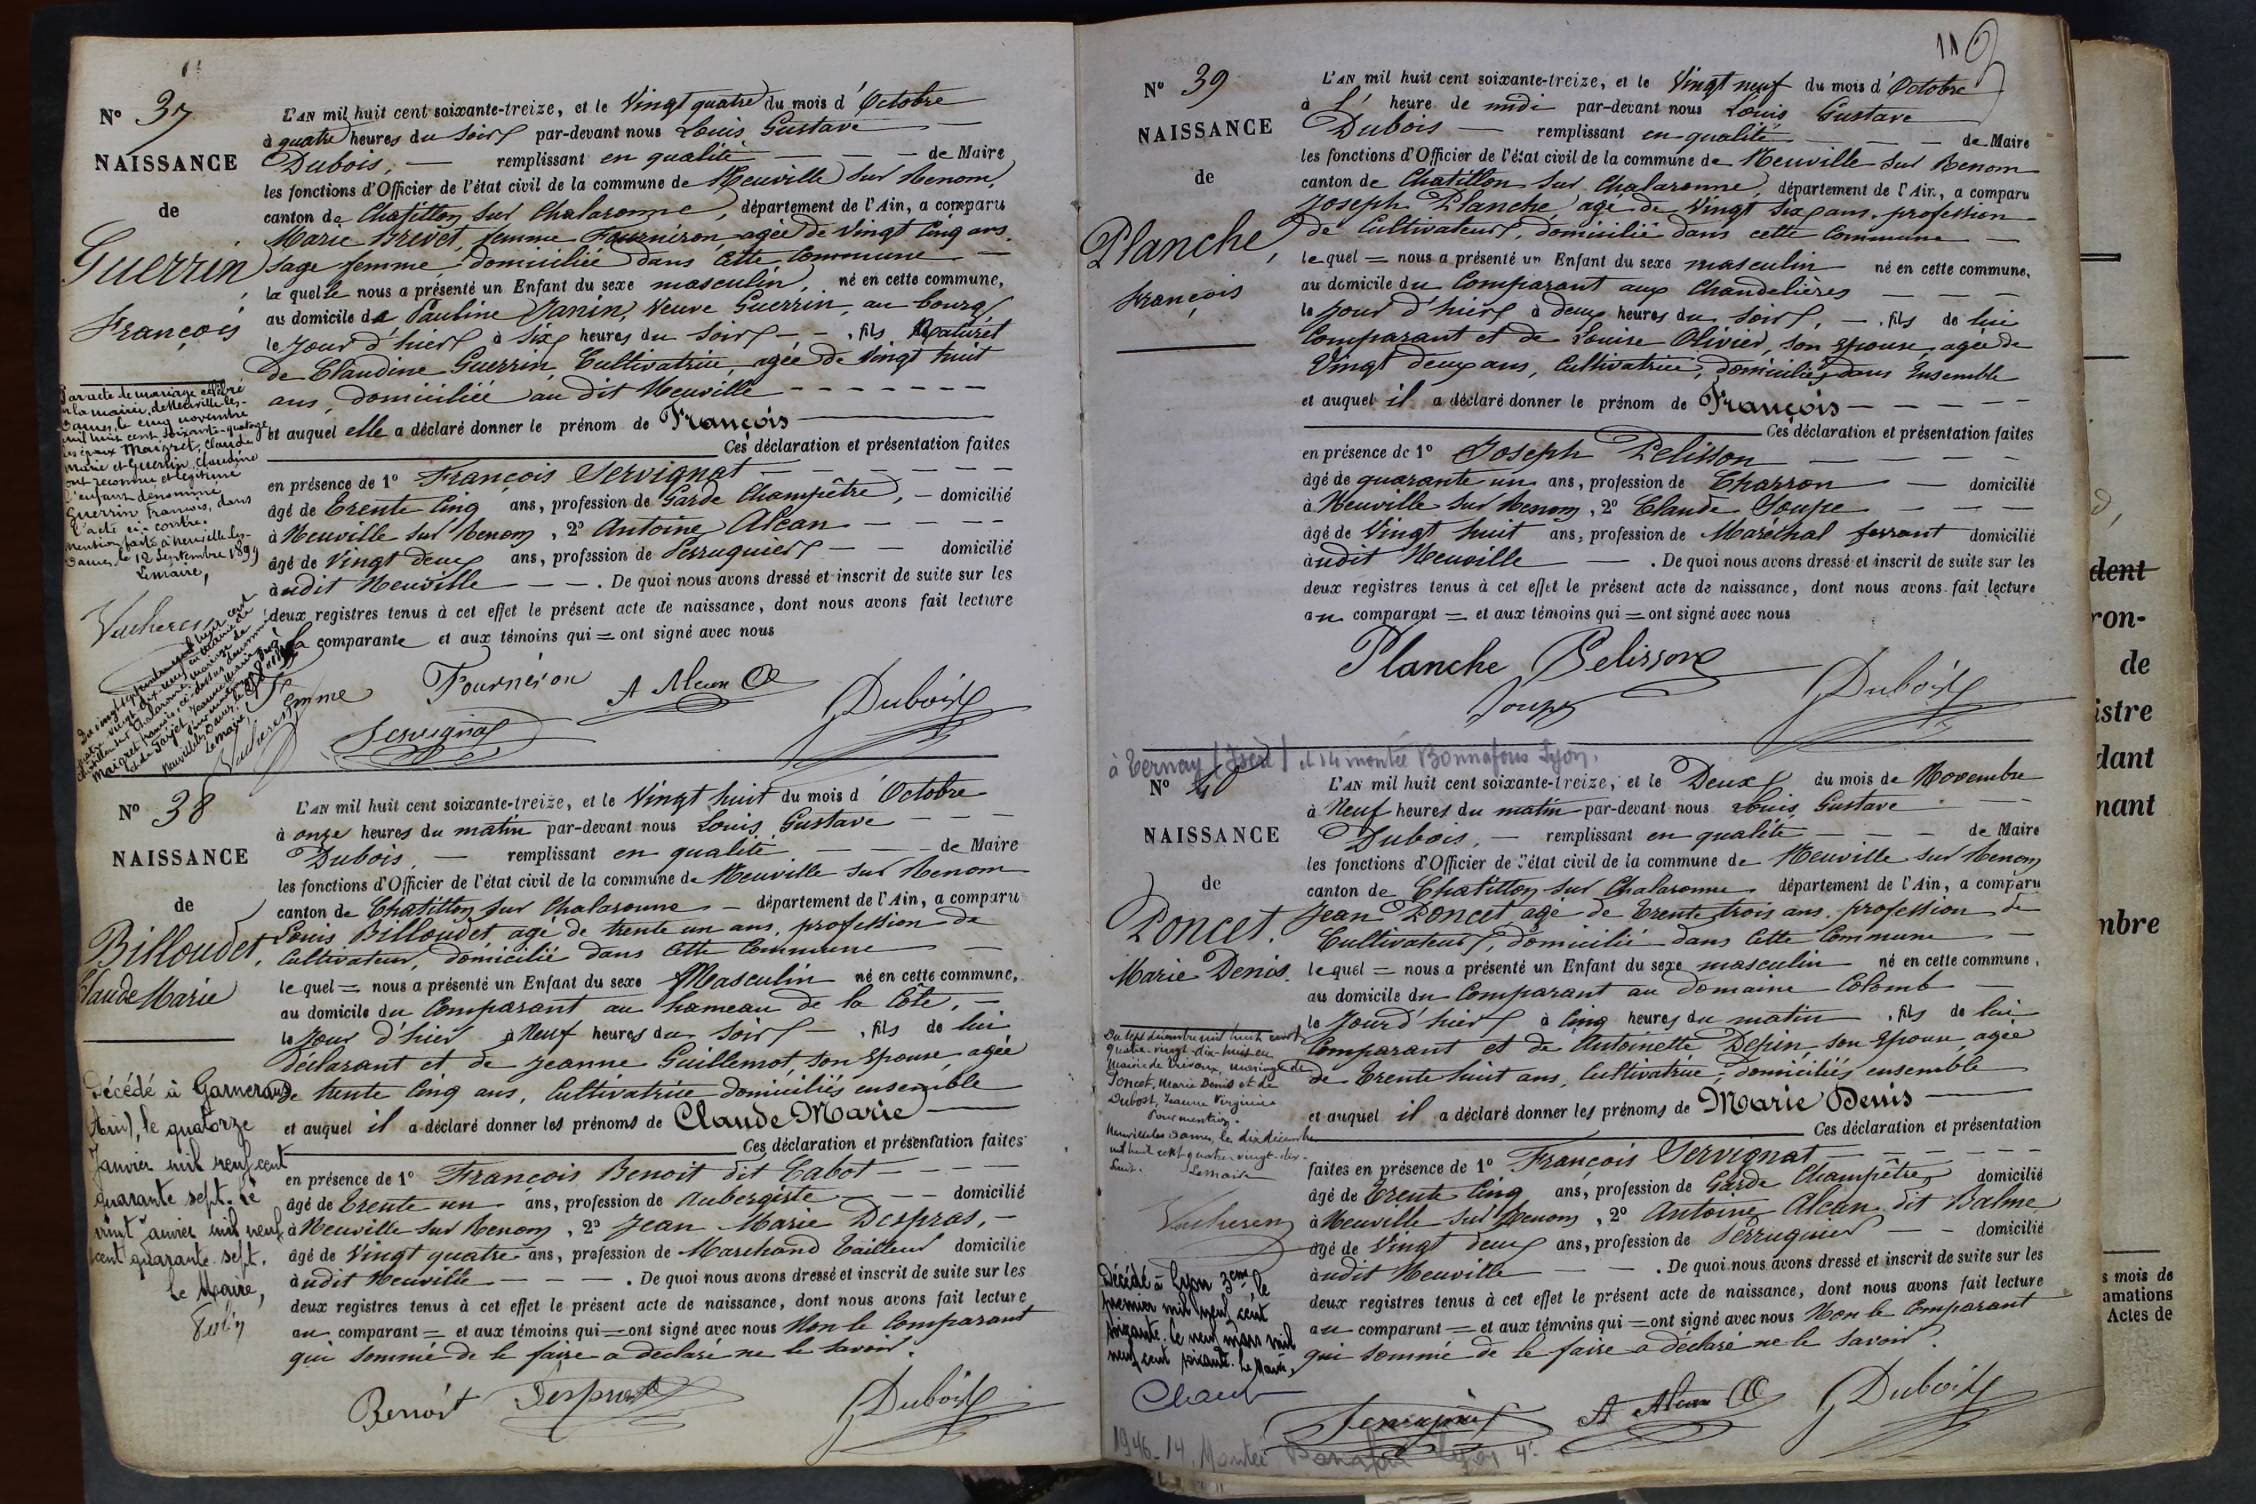 Nº 37
NAISSANCE
de
Guerrin
François
L'AN mil huit cent soixante-treize, et le Vingt quatre du mois d'Octobre
à quatre heures du soir par-devant nous Louis Gustave
Dubois, remplissant en qualité de Maire
les fonctions d'Officier de l'état civil de la commune de Neuville sur Renom,
canton de Chatillon sur Chalaronne, département de l'Ain, a comparu
Marie Brevet, femme Fournéron agée de Vingt Cinq ans,
sage femme, domiciliée dans cette Commune
la quelle nous a présenté un Enfant du sexe masculin, né en cette commune,
au domicile de Pauline Janin, Veuve Guerrin, au bourg,
le Jour d'hier à six heures du soir, fils Naturel
de Claudine Guerrin, Cultivatrice, agée de Vingt huit
ans, domiciliée au dit Neuville
et auquel elle a déclaré donner le prénom de François
Ces déclaration et présentation faites
en présence de 1º François Servignat
âgé de Trente Cinq ans, profession de Garde Champêtre, domicilié
à Neuville sur Renom, 2º Antoine Alcan
âgé de Vingt deux ans, profession de Perruquier domicilié
audit Neuville. De quoi nous avons dressé et inscrit de suite sur les
deux registres tenus à cet effet le présent acte de naissance, dont nous avons fait lecture
à la comparante et aux témoins qui = ont signé avec nous
Femme Fournéron A Alcan Dubois
Servignat
Par acte de mariage célébré
à la mairie de Neuville-les-
Dames, le cinq novembre
mil huit cent soixante-quatorze
les époux Maigret, Claude
Marie et Guerrin, Claudine
ont reconnu et légitimé
l'enfant dénommé
Guerrin François, dans
l'acte ci-contre.
Mention faite à Neuville-les-
Dames, le 12 Septembre 1899
Le maire,
Nº 38
NAISSANCE
de
Billoudet,
Claude Marie
L'AN mil huit cent soixante-treize, et le Vingt huit du mois d'Octobre
à onze heures du matin par-devant nous Louis Gustave
Dubois, remplissant en qualité de Maire
les fonctions d'Officier de l'état civil de la commune de Neuville sur Renom
canton de Chatillon sur Chalaronne département de l'Ain, a comparu
Louis Billoudet age de trente un ans, profession de
Cultivateur, domicilié dans cette Commune
le quel = nous a présenté un Enfant du sexe Masculin né en cette commune,
au domicile du Comparant au hameau de la Côte,
le Jour d'hier à Neuf heures du soir, fils de lui
déclarant et de Jeanne Guillemot, son Epouse, agée
de trente Cinq ans, Cultivatrice domiciliés ensemble
et auquel il a déclaré donner les prénoms de Claude Marie
Ces déclaration et présentation faites
en présence de 1º François Benoit dit Cabot
âgé de Trente un ans, profession de Aubergiste domicilié
à Neuville sur Renom, 2º Jean Marie Despras,
âgé de Vingt quatre ans, profession de Marchand Tailleur domicilié
audit Neuville. De quoi nous avons dressé et inscrit de suite sur les
deux registres tenus à cet effet le présent acte de naissance, dont nous avons fait lecture
au comparant = et aux témoins qui = ont signé avec nous Non le Comparant
qui sommé de le faire a déclaré ne le savoir.
Benoit Despras Dubois
Décédé à Garnerans
(Ain), le quatorze
Janvier mil neuf cent
quarante sept. Le
vingt janvier mil neuf
cent quarante sept.
Le Maire,
112
Nº 39
NAISSANCE
de
Planche,
François
L'AN mil huit cent soixante-treize, et le Vingt neuf du mois d'Octobre
à l'heure de midi par-devant nous Louis Gustave
Dubois remplissant en qualité de Maire
les fonctions d'Officier de l'état civil de la commune de Neuville sur Renom
canton de Chatillon sur Chalaronne, département de l'Ain, a comparu
Joseph Planche, agé de Vingt six ans, profession
de Cultivateur, domicilié dans cette Commune
le quel = nous a présenté un Enfant du sexe masculin né en cette commune,
au domicile du Comparant aux Chandelières
le Jour d'hier à deux heures du soir, fils de lui
Comparant et de Louise Olivier, son Epouse, agée de
Vingt deux ans, Cultivatrice, domiciliés dans Ensemble
et auquel il a déclaré donner le prénom de François
Ces déclaration et présentation faites
en présence de 1º Joseph Pelisson
âgé de quarante un ans, profession de Charron domicilié
à Neuville sur Renom, 2º Claude Soupe
âgé de Vingt huit ans, profession de Maréchal ferrant domicilié
audit Neuville. De quoi nous avons dressé et inscrit de suite sur les
deux registres tenus à cet effet le présent acte de naissance, dont nous avons fait lecture
au comparant = et aux témoins qui = ont signé avec nous
Planche Pelisson
Soupe Dubois
à Ternay (Isère) et 14 montée Bonnafous Lyon.
Nº 40
NAISSANCE
de
Poncet,
Marie Denis.
L'AN mil huit cent soixante-treize, et le Deux du mois de Novembre
à Neuf heures du matin par-devant nous Louis Gustave
Dubois, remplissant en qualité de Maire
les fonctions d'Officier de l'état civil de la commune de Neuville sur Renom
canton de Chatillon sur Chalaronne département de l'Ain, a comparu
Jean Poncet agé de Trente trois ans, profession de
Cultivateur, domicilié dans cette Commune
le quel = nous a présenté un Enfant du sexe masculin né en cette commune,
au domicile du Comparant au domaine Colomb
le Jour d'hier à Cinq heures du matin, fils de lui
Comparant et de Antoinette Depin son Epouse, agée
de Trente huit ans, Cultivatrice, domiciliés ensemble
et auquel il a déclaré donner les prénoms de Marie Denis
Ces déclaration et présentation
faites en présence de 1º François Servignat
âgé de Trente Cinq ans, profession de Garde Champêtre domicilié
à Neuville sur Renom, 2º Antoine Alcan dit Balme
âgé de Vingt deux ans, profession de Perruquier domicilié
audit Neuville. De quoi nous avons dressé et inscrit de suite sur les
deux registres tenus à cet effet le présent acte de naissance, dont nous avons fait lecture
au comparant = et aux témoins qui = ont signé avec nous Non le Comparant
qui sommé de le faire a déclaré ne le savoir.
Servignat A Alcan Dubois
Du sept décembre mil huit cent
quatre-vingt-dix-huit en
mairie de Trévoux, mariage de
Poncet, Marie Denis et de
Dubost, Jeanne Virginie
Pour mention.
Neuville les Dames, le dix décembre
mil huit cent quatre-vingt-dix-
huit. Le maire
Décédé à Lyon 3em le
premier mil neuf cent
soixante. Le neuf mars mil
neuf cent soixante. Le Maire,
1946-14, Montée Bonafous Lyon 4e
dent
ron-
de
istre
dant
nant
mbre
s mois de
amations
Actes de